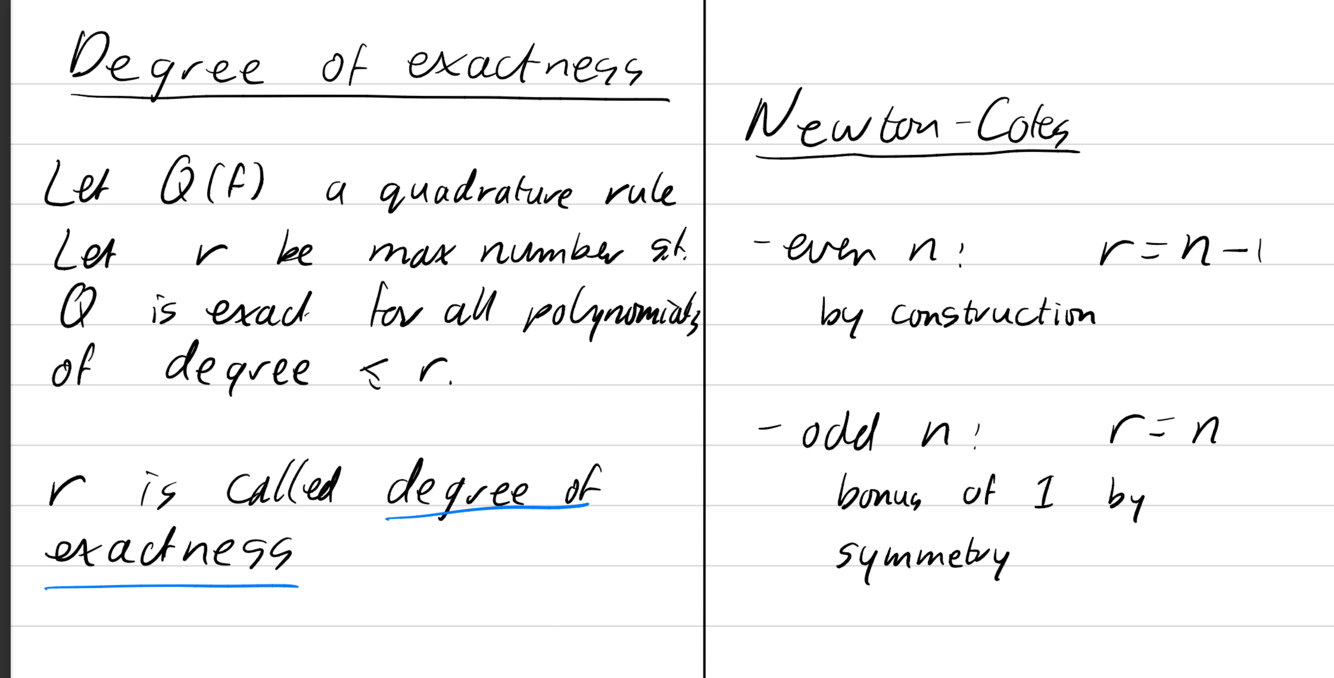 Degree of exactness
Let Q(f) a quadrature rule
Let r be max number s.t.
Q is exact for all polynomials
of degree ≤ r.
r is called degree of
exactness
Newton-Cotes
- even n: r = n - 1
by construction
- odd n: r = n
bonus of 1 by
symmetry